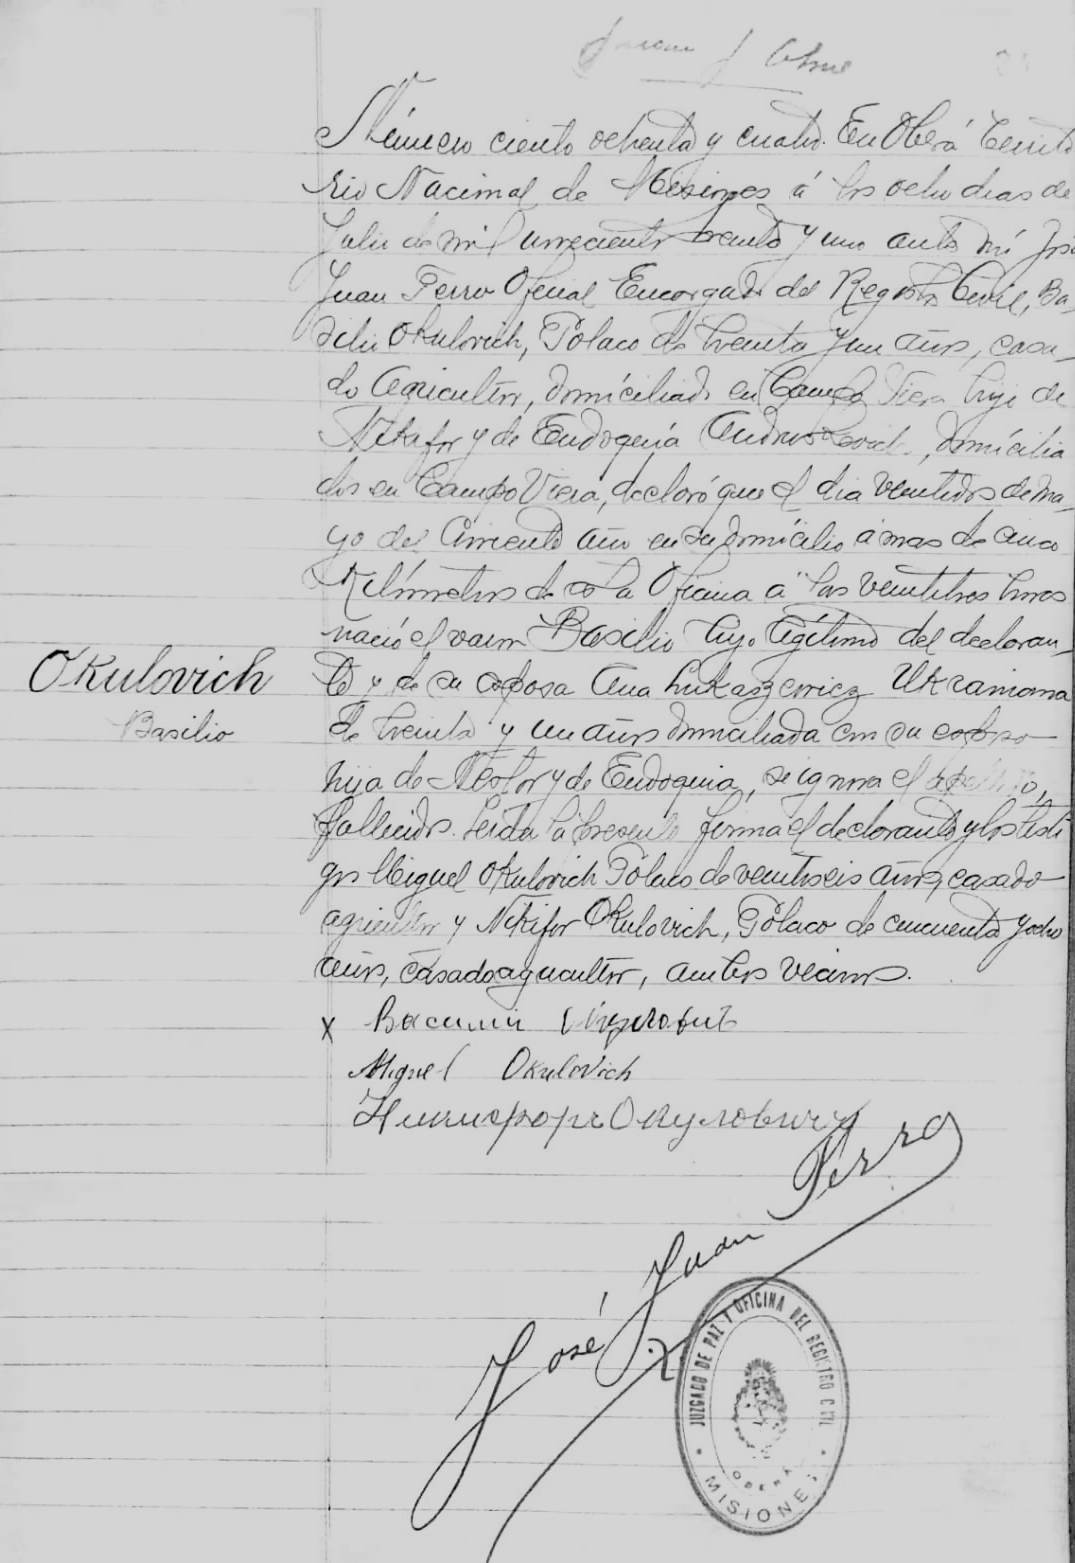 Número ciento ochenta y cuatro. En Oberá Territo
rio Nacional de Misiones á los ocho dias de
Julio de mil novecientos treinta y uno ante mí José
Juan Ferro Oficial Encargado del Registro Civil, Ba-
silio Okulovich, Polaco de treinta y un años, casa-
do agricultor, domiciliado en Campo Viera hijo de
Nikifor y de Eudoquia domicilia
dos en Campo Viera, declaró que el dia veintidos de ma-
yo del corriente año en su domicilio á mas de cinco
Kilómetros de la Oficina á las veintitres horas
nació el varon Basilio hijo legítimo del declaran-
te y de su esposa Ana Lukaszewicz Ukraniana
de treinta y un años domiciliada con su esposo
hija de Nestor y de Eudoquia, se ignora el apellido,
fallecidos. Leida la presente firma el declarante y los testi
gos Miguel Okulovich Polaco de veintiseis años, casado
agricultor y Nikifor Okulovich, Polaco de cincuenta y ocho
años, casado agricultor, ambos vecinos.
Okulovich
Basilio
X
Miguel Okulovich
Никифоръ Окуловичъ
José Juan Ferro
JUZGADO DE PAZ Y OFICINA DEL REGISTRO CIVIL
OBERÁ
MISIONES